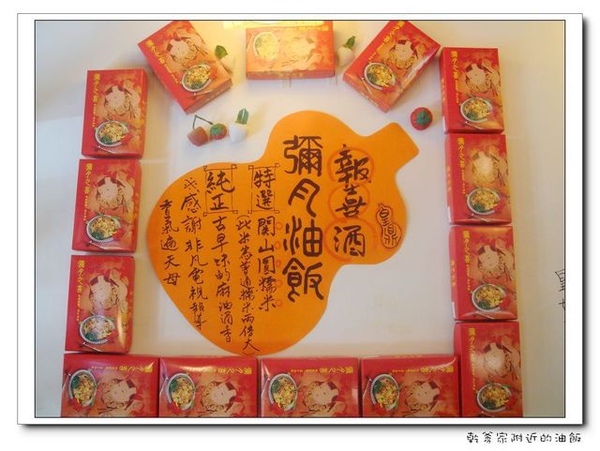 報喜酒
皇鼎
彌月油飯
特選 関山圓糯米
此米為普通糯米兩倍大
純正 古早味的麻油 香
感謝非凡電視報導
香氣遍天母
彌月之喜
彌月之喜
彌月之喜
彌月之喜
彌月之喜
彌月之喜
家附近的油飯